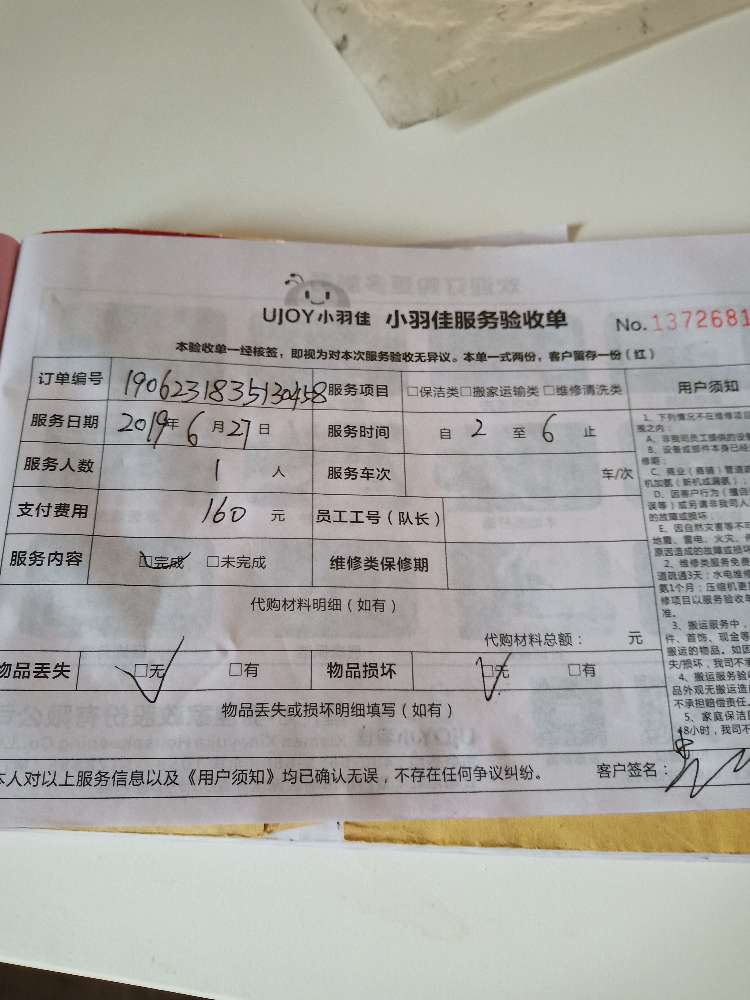 UJOY小羽佳 小羽佳服务验收单 No.1372681
本验收单一经核签，即视为对本次服务验收无异议。本单一式两份，客户留存一份（红）
订单编号 1906231835130458 服务项目 □保洁类□搬家运输类□维修清洗类 用户须知
服务日期 2019年6月27日 服务时间 自 2 至 6 止
服务人数 1 人 服务车次 车/次
支付费用 160 元 员工工号（队长）
服务内容 □完成 □未完成 维修类保修期
代购材料明细（如有）
代购材料总额： 元
物品丢失 □无 □有 物品损坏 □无 □有
物品丢失或损坏明细填写（如有）
本人对以上服务信息以及《用户须知》均已确认无误，不存在任何争议纠纷。 客户签名：
1、下列情况不在维修项目
围之内：
A、非我司员工提供的设备
B、设备或部件本身已经
修期；
C、商业（商铺）管道
机加氨（新机或漏氨）；
D、因客户行为（擅自
误等）或另请非我司人
的故障或损坏；
E、因自然灾害等不
地震、雷电、火灾、
原因造成的故障或损坏
2、维修类服务免费
道疏通3天；水电维修
氨1个月；压缩机更
修项目以服务验收单
准。
3、搬运服务中，
件、首饰、现金等
搬运的物品。如因
失/损坏，我司不
4、搬运服务验收
品外观无搬运造
不承担赔偿责任。
5、家庭保洁
48小时，我司不